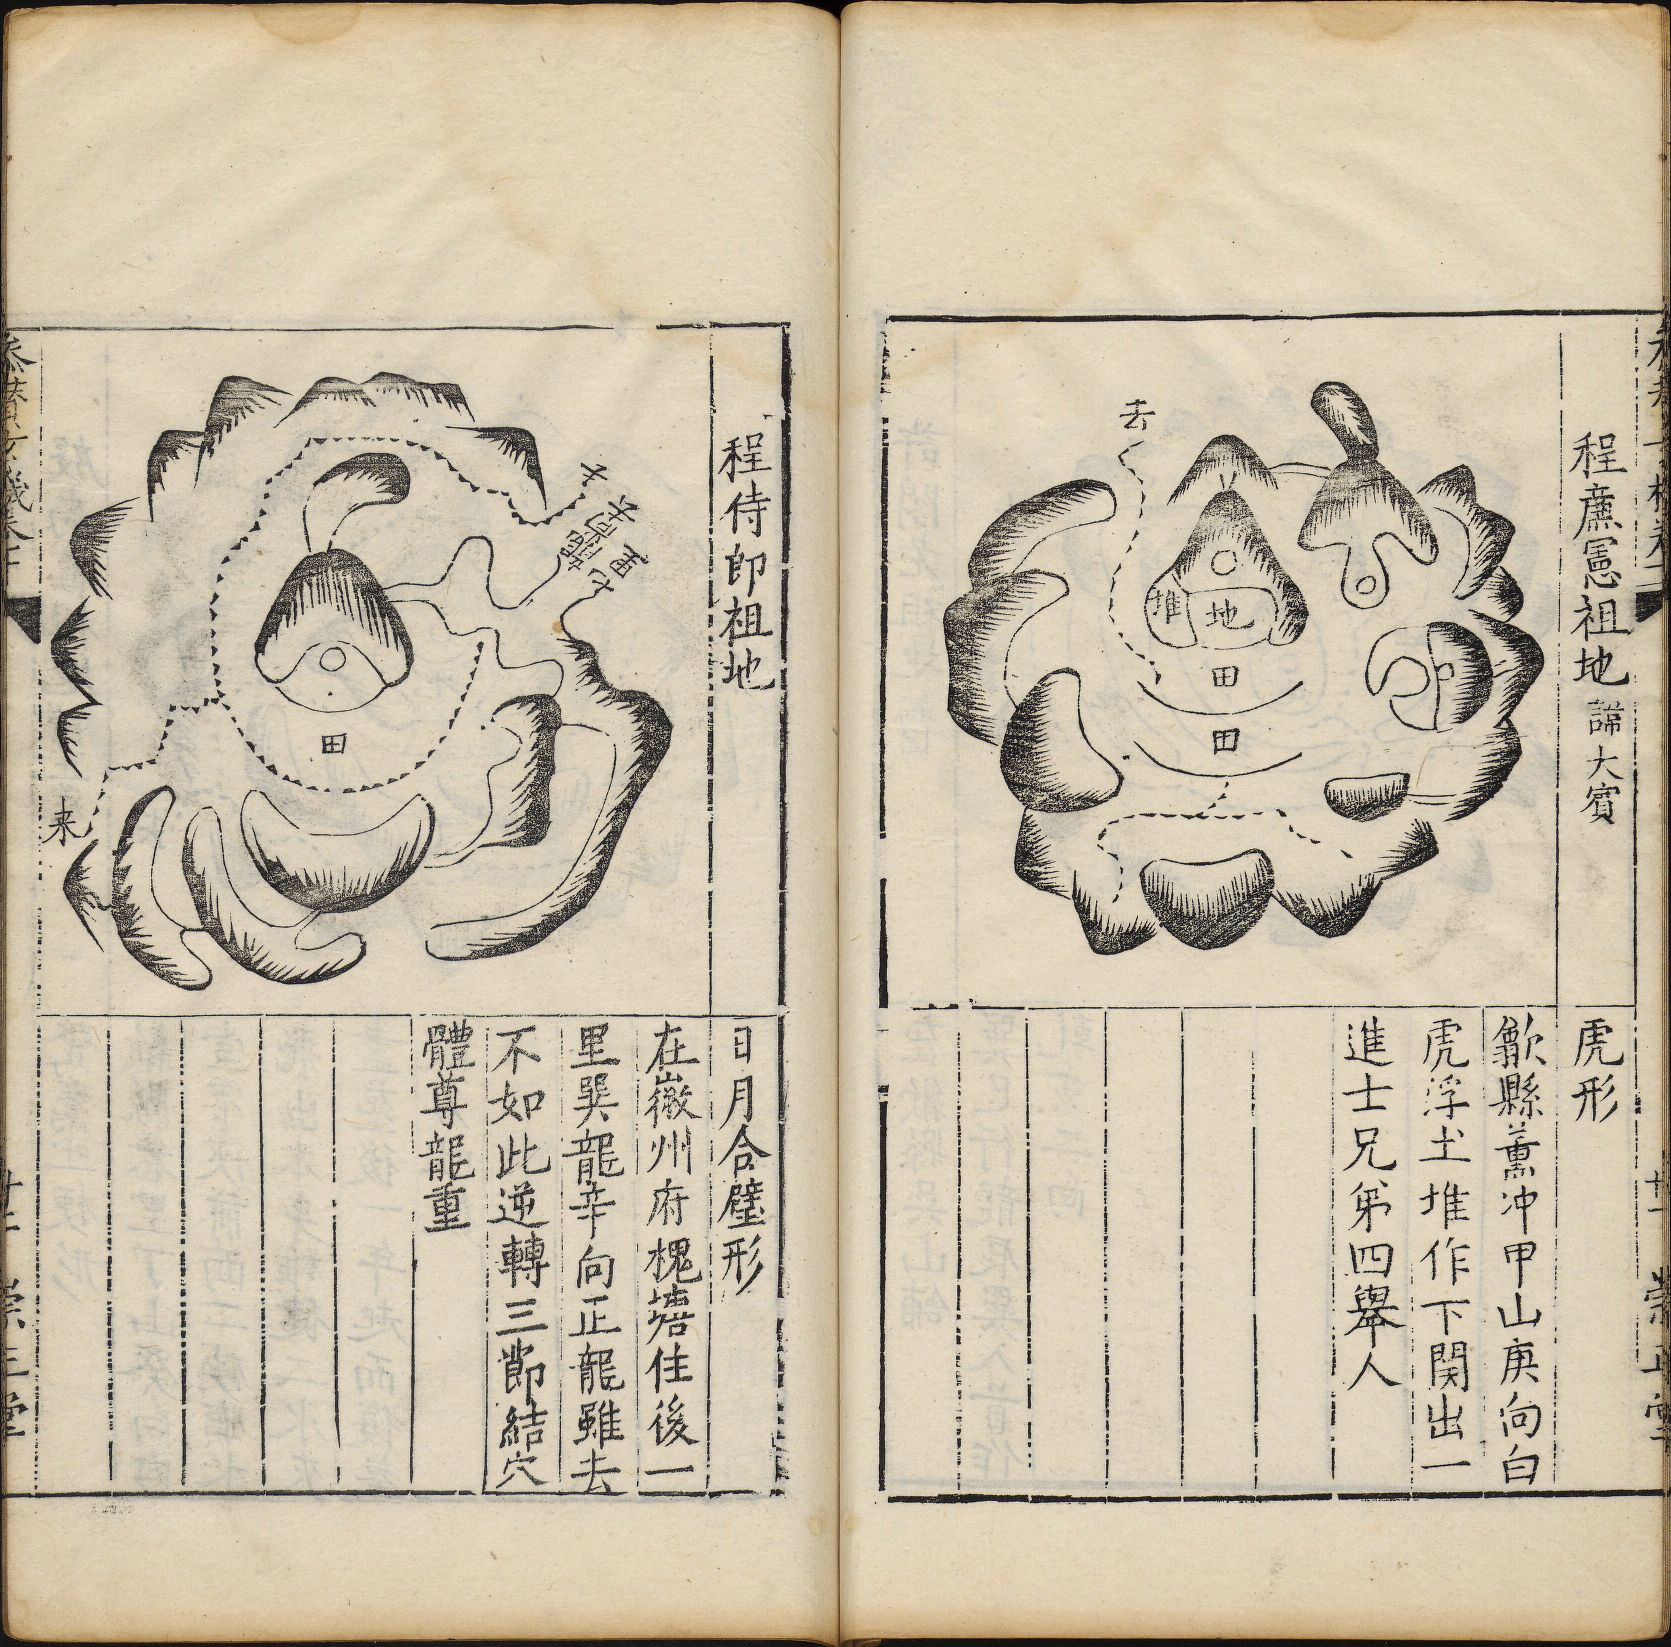 程廉憲祖地 諱大賓
去
堆
地
田
田
虎形
歙縣薰冲甲山庚向白
虎浮土堆作下関出一
進士兄弟四舉人
程侍郎祖地
去
田
来
日月合璧形
在徽州府槐塘住後一
里巽龍辛向正龍雖去
不如此逆轉三節結穴
體尊龍重